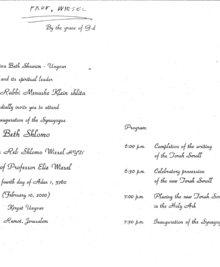 PROF. WIESEL
By the grace of G-d
Beth Shmuim - Ungvar
and its spiritual leader
Rabbi Menashe Klein shlita
invite you to attend
inauguration of the Synagogue
Beth Shlomo
Reb Shlomo Wiesel
of Professor Elie Wiesel
fourth day of Adar 1, 5760
(February 10, 2000)
Kiryat Ungvar
Ramot, Jerusalem
Program:
6:00 p.m. Completion of the writing
of the Torah Scroll
6:30 p.m. Celebratory procession
of the new Torah Scroll
7:00 p.m. Placing the new Torah
in the Holy Ark
7:30 p.m. Inauguration of the